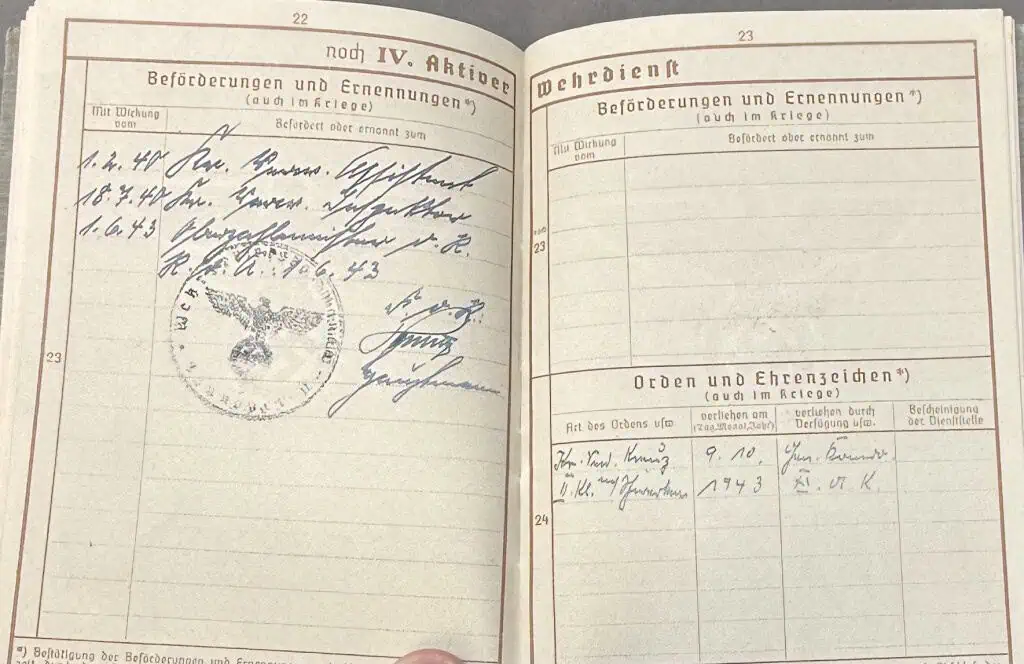 22
noch IV. Aktiver
Beförderungen und Ernennungen*)
(auch im Kriege)
Mit Wirkung
vom
Befördert oder ernannt zum
1.2.40 Kr. Verw. Assistent
18.7.40 Kr. Verw. Inspektor
1.6.43 Oberzahlmeister d. R.
R. 1.6.43
Hauptmann
23
*) Bestätigung der Beförderungen und
23
Wehrdienst
Beförderungen und Ernennungen*)
(auch im Kriege)
Mit Wirkung
vom
Befördert oder ernannt zum
noch
23
Orden und Ehrenzeichen*)
(auch im Kriege)
Art des Ordens usw
verliehen am
(Tag, Monat, Jahr)
verliehen durch
Verfügung usw.
Bescheinigung
der Dienststelle
Kr. Verd. Kreuz 9.10. Gen. Kommdo.
II. Kl. mit Schwertern 1943 XI. A K.
24